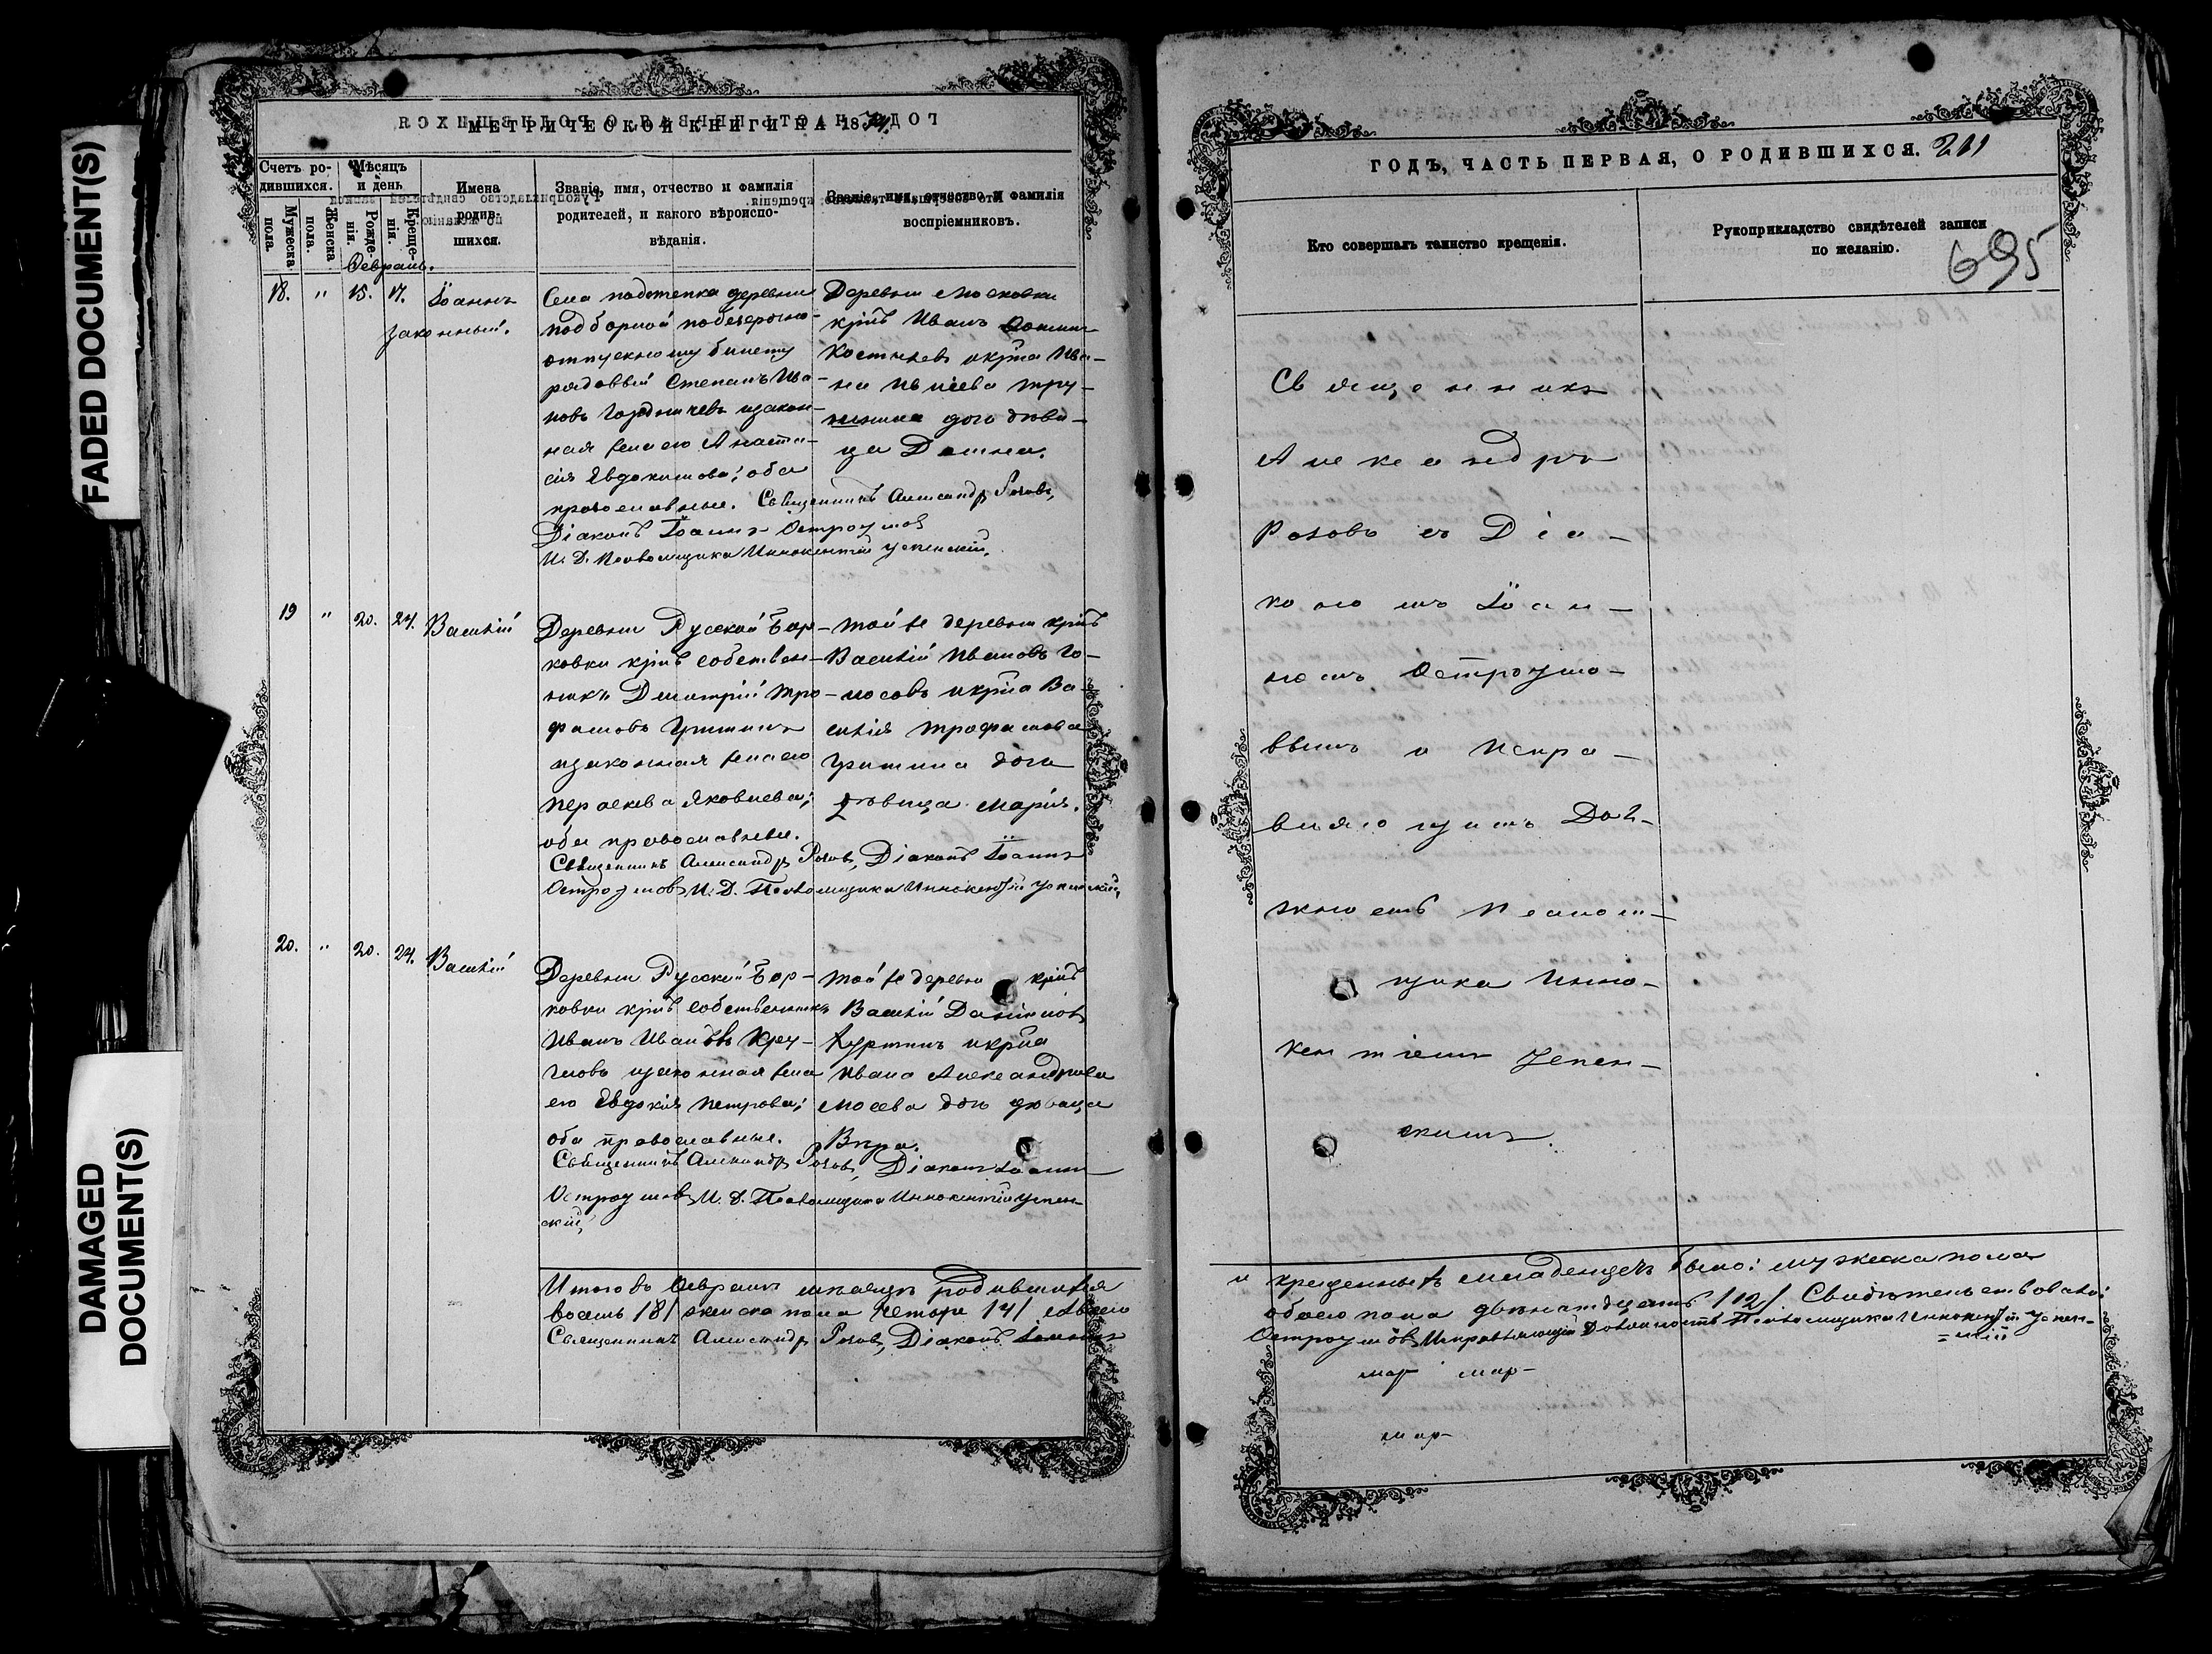 FADED DOCUMENT(S)
DAMAGED DOCUMENT(S)
МЕТРИЧЕСКОЙ КНИГИ НА 1874.
Счетъ родившихся.
Мужеска пола.
Женска пола.
Мѣсяцъ и день
Рожденія.
Крещенія.
Имена родившихся.
Званіе, имя, отчество и фамилія
родителей, и какого вѣроиспо-
вѣданія.
Званіе, имя, отчество и фамилія
воспріемниковъ.
Февраль.
18. " 15. 17. Іоаннъ
законный.
Села подстепка деревни
подборной по безсрочно-
отпускному билету
рядовый Степанъ Ива-
новъ Гордѣичевъ и закон-
ная жена его Анаста-
сія Евдокимова; оба
православные. Священникъ Александръ Розовъ,
Діаконъ Іоаннъ Остроумовъ
И. Д. Псаломщика Иннокентій Успенскій.
Деревни Московки
крнъ Иванъ
Костинъ и крна Ива-
на
дочь дѣви-
ца
19 " 20. 24. Василій
Деревни Русской Бор-
ковки крнъ собствен-
никъ Димитрій Тро-
фимовъ Гришинъ
и законная жена его
Параскева Яковлева;
оба православные.
Священникъ Александръ Розовъ, Діаконъ Іоаннъ
Остроумовъ И. Д. Псаломщика Иннокентій Успенскій.
той же деревни крнъ
Василій Ивановъ Го-
лосовъ и крна Ва-
силія Трофимова
Гришина дочь
дѣвица Марія.
20. " 20. 24. Василій
Деревни Русской Бор-
ковки крнъ собственникъ
Иванъ Ивановъ Кру-
гловъ и законная жена
его Евдокія Петрова;
оба православные.
Священникъ Александръ Розовъ, Діаконъ Іоаннъ
Остроумовъ И. Д. Псаломщика Иннокентій Успен-
скій,
той же деревни крнъ
Василій Даніиловъ
Куртинъ и крна
Ивана Александрова
Мосева дочь дѣвица
Вѣра.
Итого въ Феврале месяцѣ родившихся
восемь /8/ женска пола четыре /4/ а всего
Священникъ Александръ Розовъ, Діаконъ Іоаннъ
ГОДЪ, ЧАСТЬ ПЕРВАЯ, О РОДИВШИХСЯ. 211
695
Кто совершалъ таинство крещенія.
Рукоприкладство свидѣтелей записи
по желанію.
Священникъ
Александръ
Розовъ съ Діа-
кономъ Іоан-
номъ Остроумо-
вымъ и Испра-
вляющимъ Дол-
жность Псалом-
щика Инно-
кентіемъ Успен-
скимъ.
и крещенныхъ младенцевъ было: мужеска пола
обоего пола двѣнадцать /12/. Свидѣтельствовали:
Остроумовъ Исправляющій Должность Псаломщика Иннокентій Успен-
=скій
мар мар-
мар-